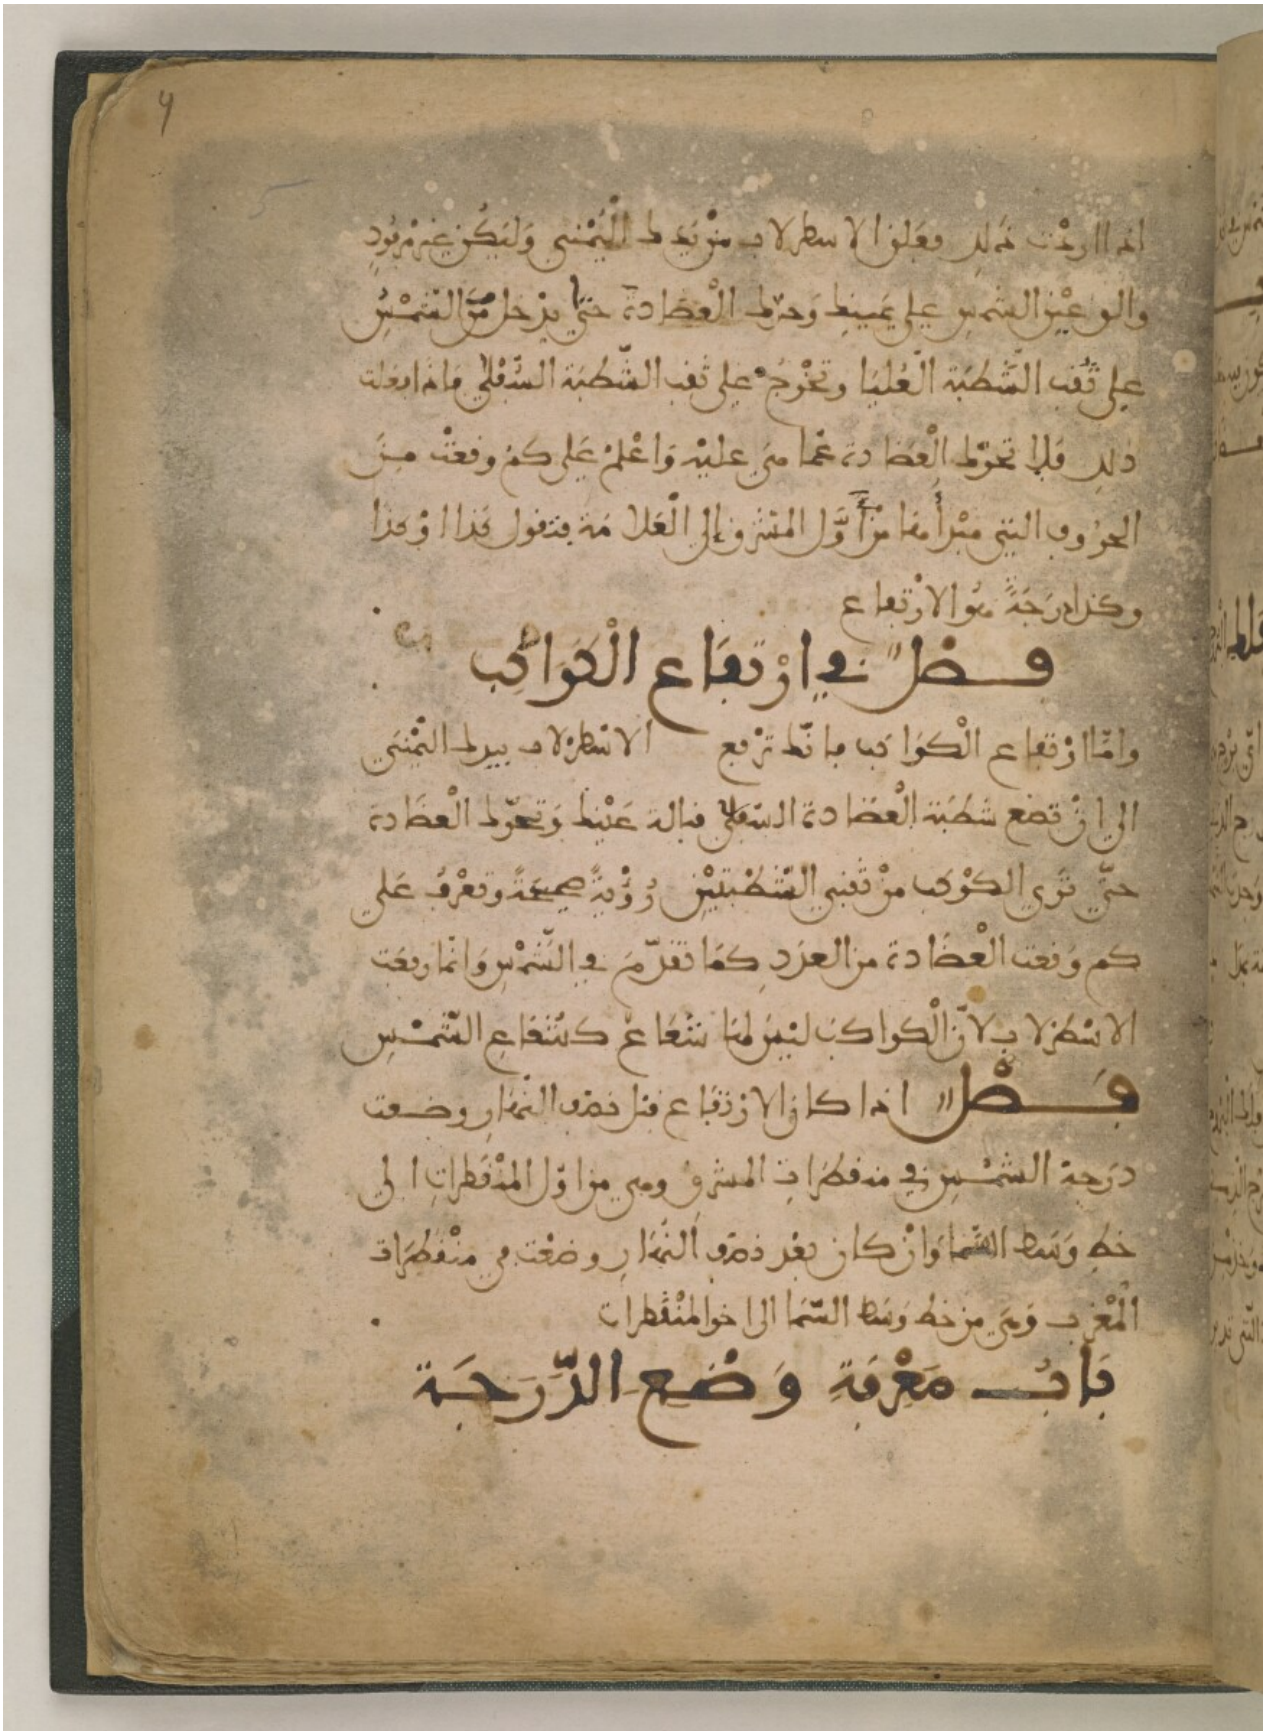 اذا اردت ذلك فعلق الاسطرلاب من يدك اليمنى وليكن غير مربود
والق عين الشمس على يمينك وحرك العضادة حتى يدخل ضوء الشمس
على ثقب الشطبة العليا وتخرج على ثقب الشطبة السفلى فاذا فعلت
ذلك فلا تحرك العضادة عما هي عليه واعلم على كم وقعت من
الحروف التي مبدأها من أول المشرق إلى العلامة فتقول كذا او كذا
وكذا درجة هو الارتفاع
فصل في ارتفاع الكواكب
واما ارتفاع الكواكب فانك ترفع الاسطرلاب بيدك اليمنى
الى ان تضع شطبة العضادة السفلى قبالة عينك وتحرك العضادة
حتى ترى الكوكب من ثقبي الشطبتين رؤية صحيحة وتعرف على
كم وقعت العضادة من العدد كما تقدم في الشمس وانما رفعت
الاسطرلاب لان الكواكب ليس لها شعاع كشعاع الشمس
فصل اذا كان الارتفاع قبل نصف النهار وضعت
درجة الشمس في مقنطرات المشرق وهي من اول المقنطرات الى
خط وسط السما وان كان بعد نصف النهار وضعت في مقنطرات
المغرب وهي من خط وسط السما الى اخر المقنطرات
باب معرفة وضع الدرجة